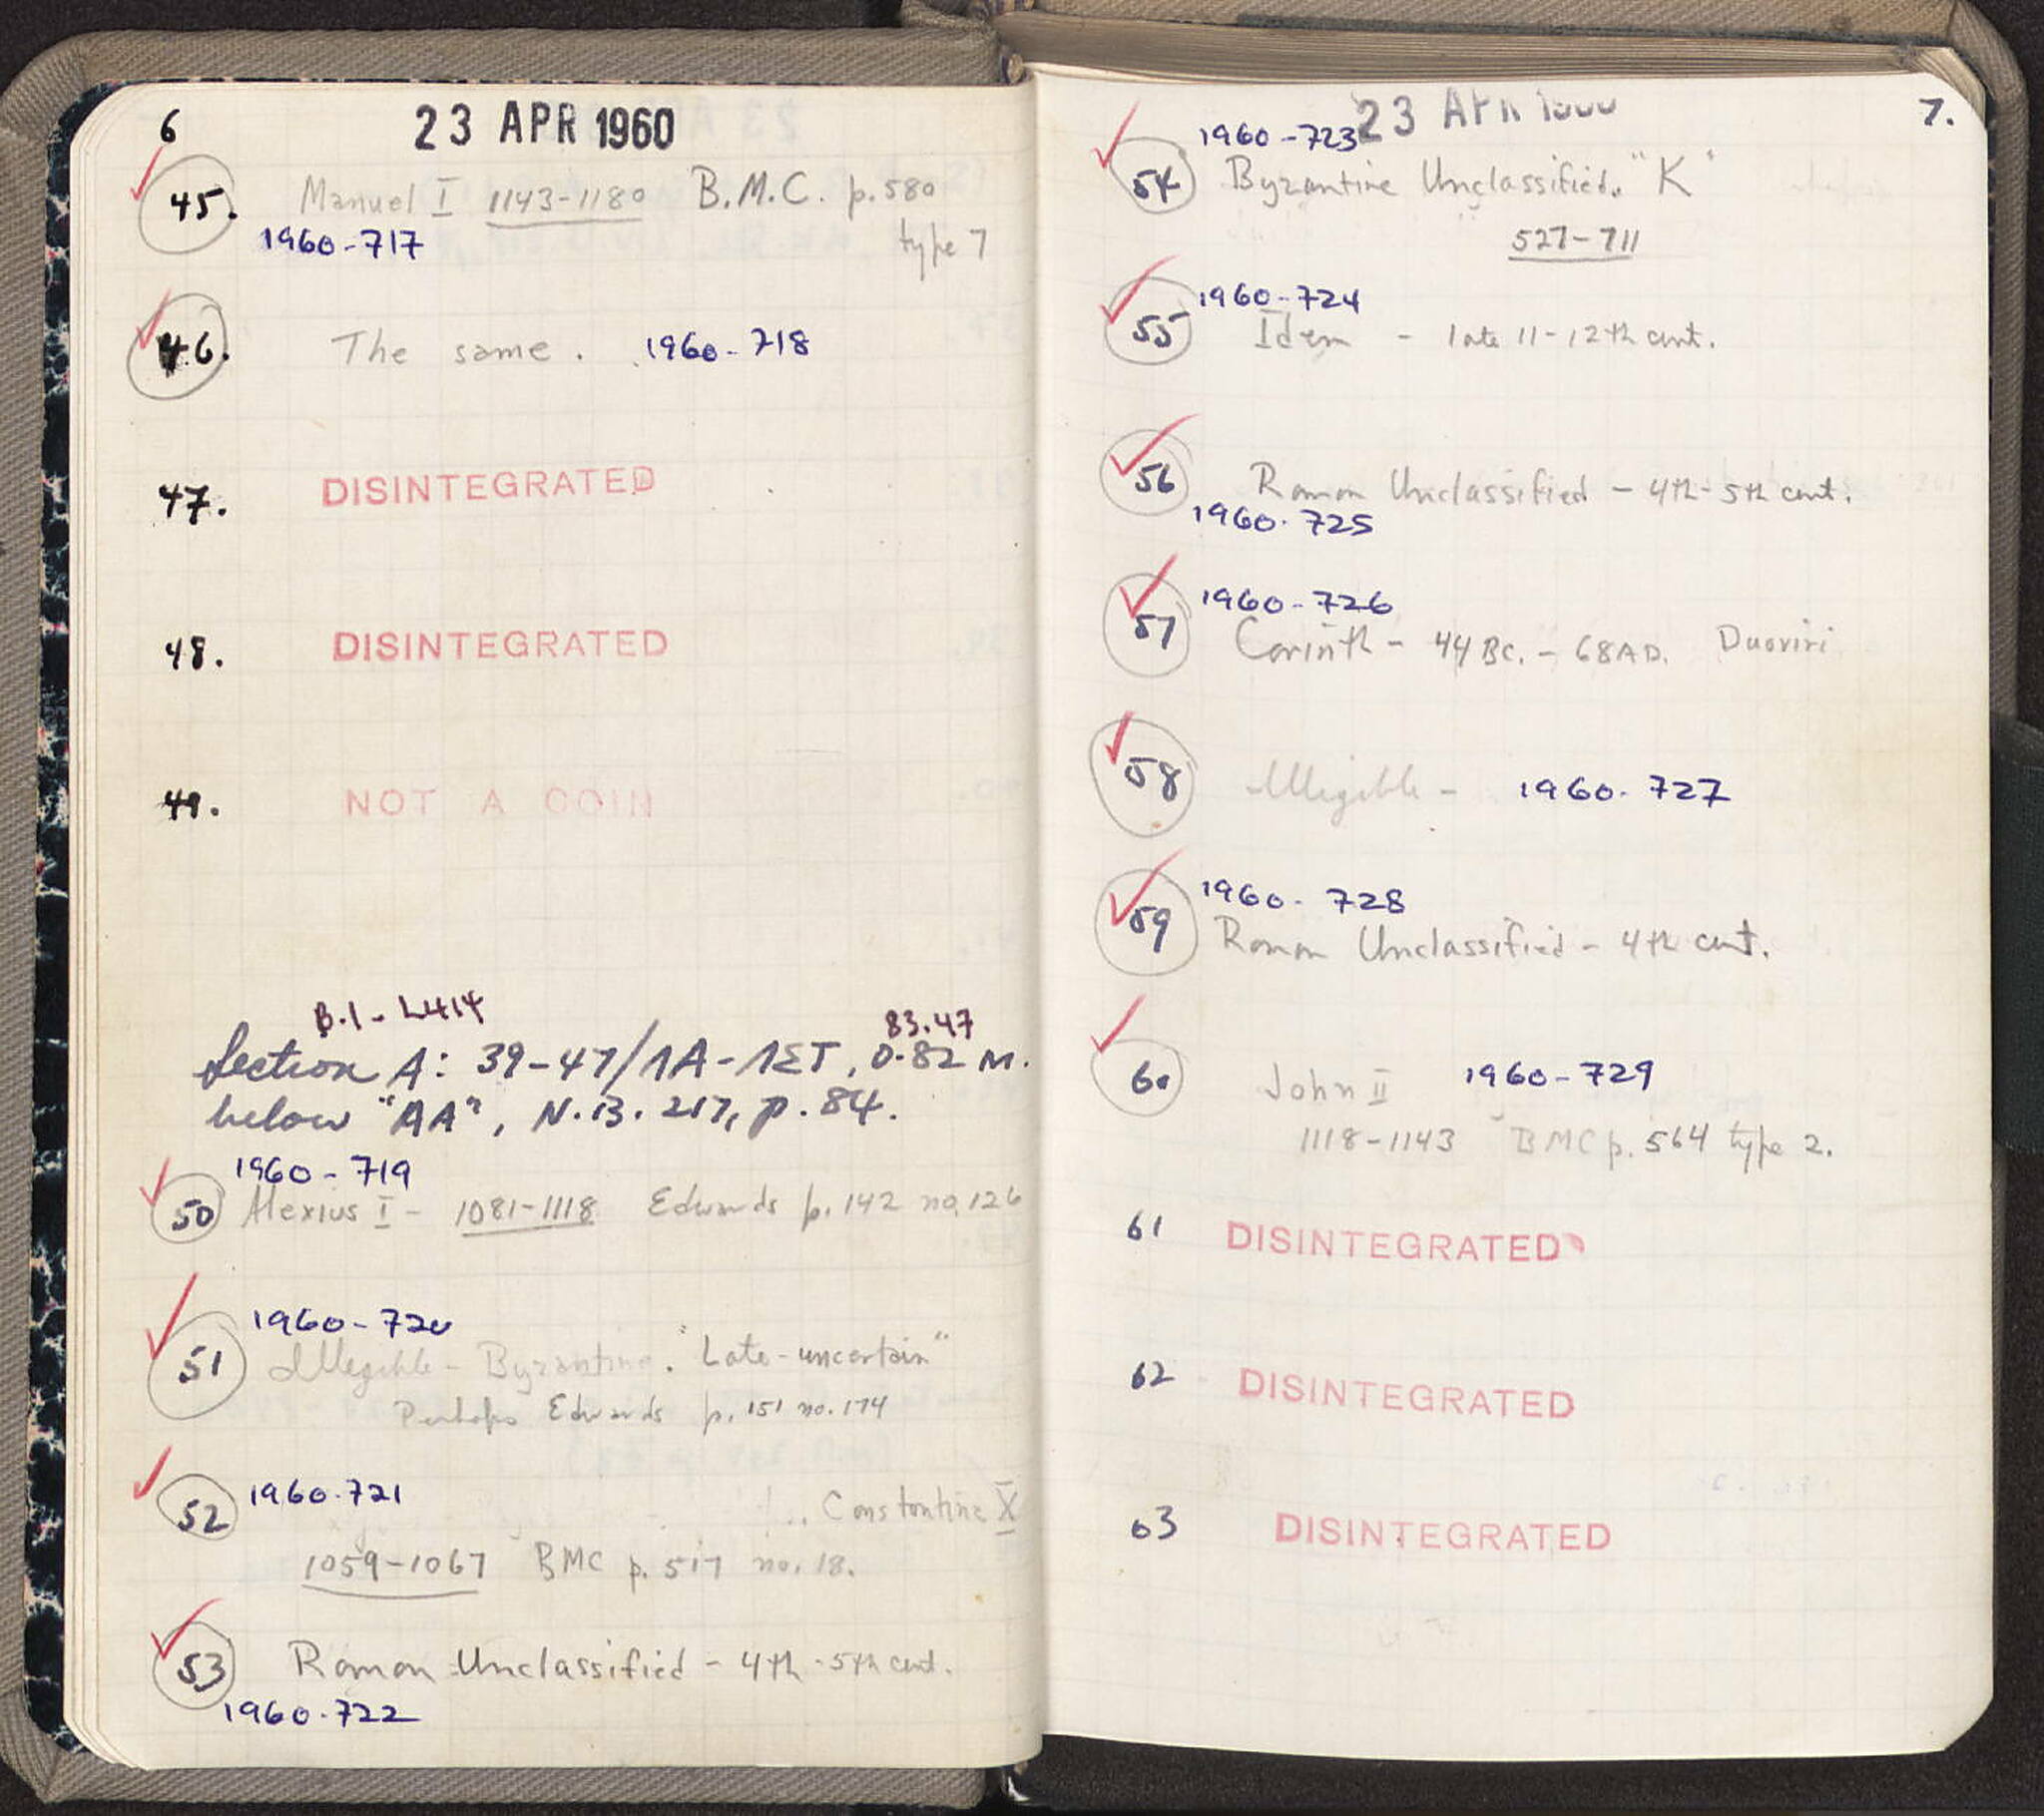 6
23 APR 1960
45. Manuel I 1143-1180 B.M.C. p.580
1960-717 type 7
46. The same. 1960-718
47. DISINTEGRATED
48. DISINTEGRATED
49. NOT A COIN
B.1 - L414 83.47
Section A: 39-47/ΛA-ΛΣΤ, 0.82 M.
below "AA", N.B. 217, p. 84.
1960-719
50 Alexius I - 1081-1118 Edwards p. 142 no. 126
1960-720
51 Illegible - Byzantine. "Late-uncertain"
Perhaps Edwards p. 151 no. 174
52 1960-721
Constantine X
1059-1067 BMC p. 517 no. 18.
53 Roman Unclassified - 4th-5th cent.
1960-722
7.
23 APR
1960-723
54 Byzantine Unclassified. "K"
527-711
1960-724
55 Idem - late 11-12th cent.
56 Roman Unclassified - 4th-5th cent.
1960-725
1960-726
57 Corinth - 44 BC. - 68 AD. Duoviri
58 Illegible - 1960-727
1960-728
59 Roman Unclassified - 4th cent.
60 John II 1960-729
1118-1143 BMC p. 564 type 2.
61 DISINTEGRATED
62 DISINTEGRATED
63 DISINTEGRATED